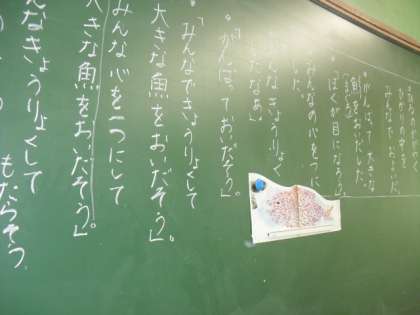 ひかりの中を
・がんばって大きな
魚をおいだした。
・ぼくが目になろう」
みんなの心を一つに
した。
みんなきょうりょく
したなあ。
・「がんばっておいだそう。」
・「みんなできょうりょくして
大きな魚をおいだそう」。
みんな心を一つにして
大きな魚をおいだそう」
んなきょうりょくして